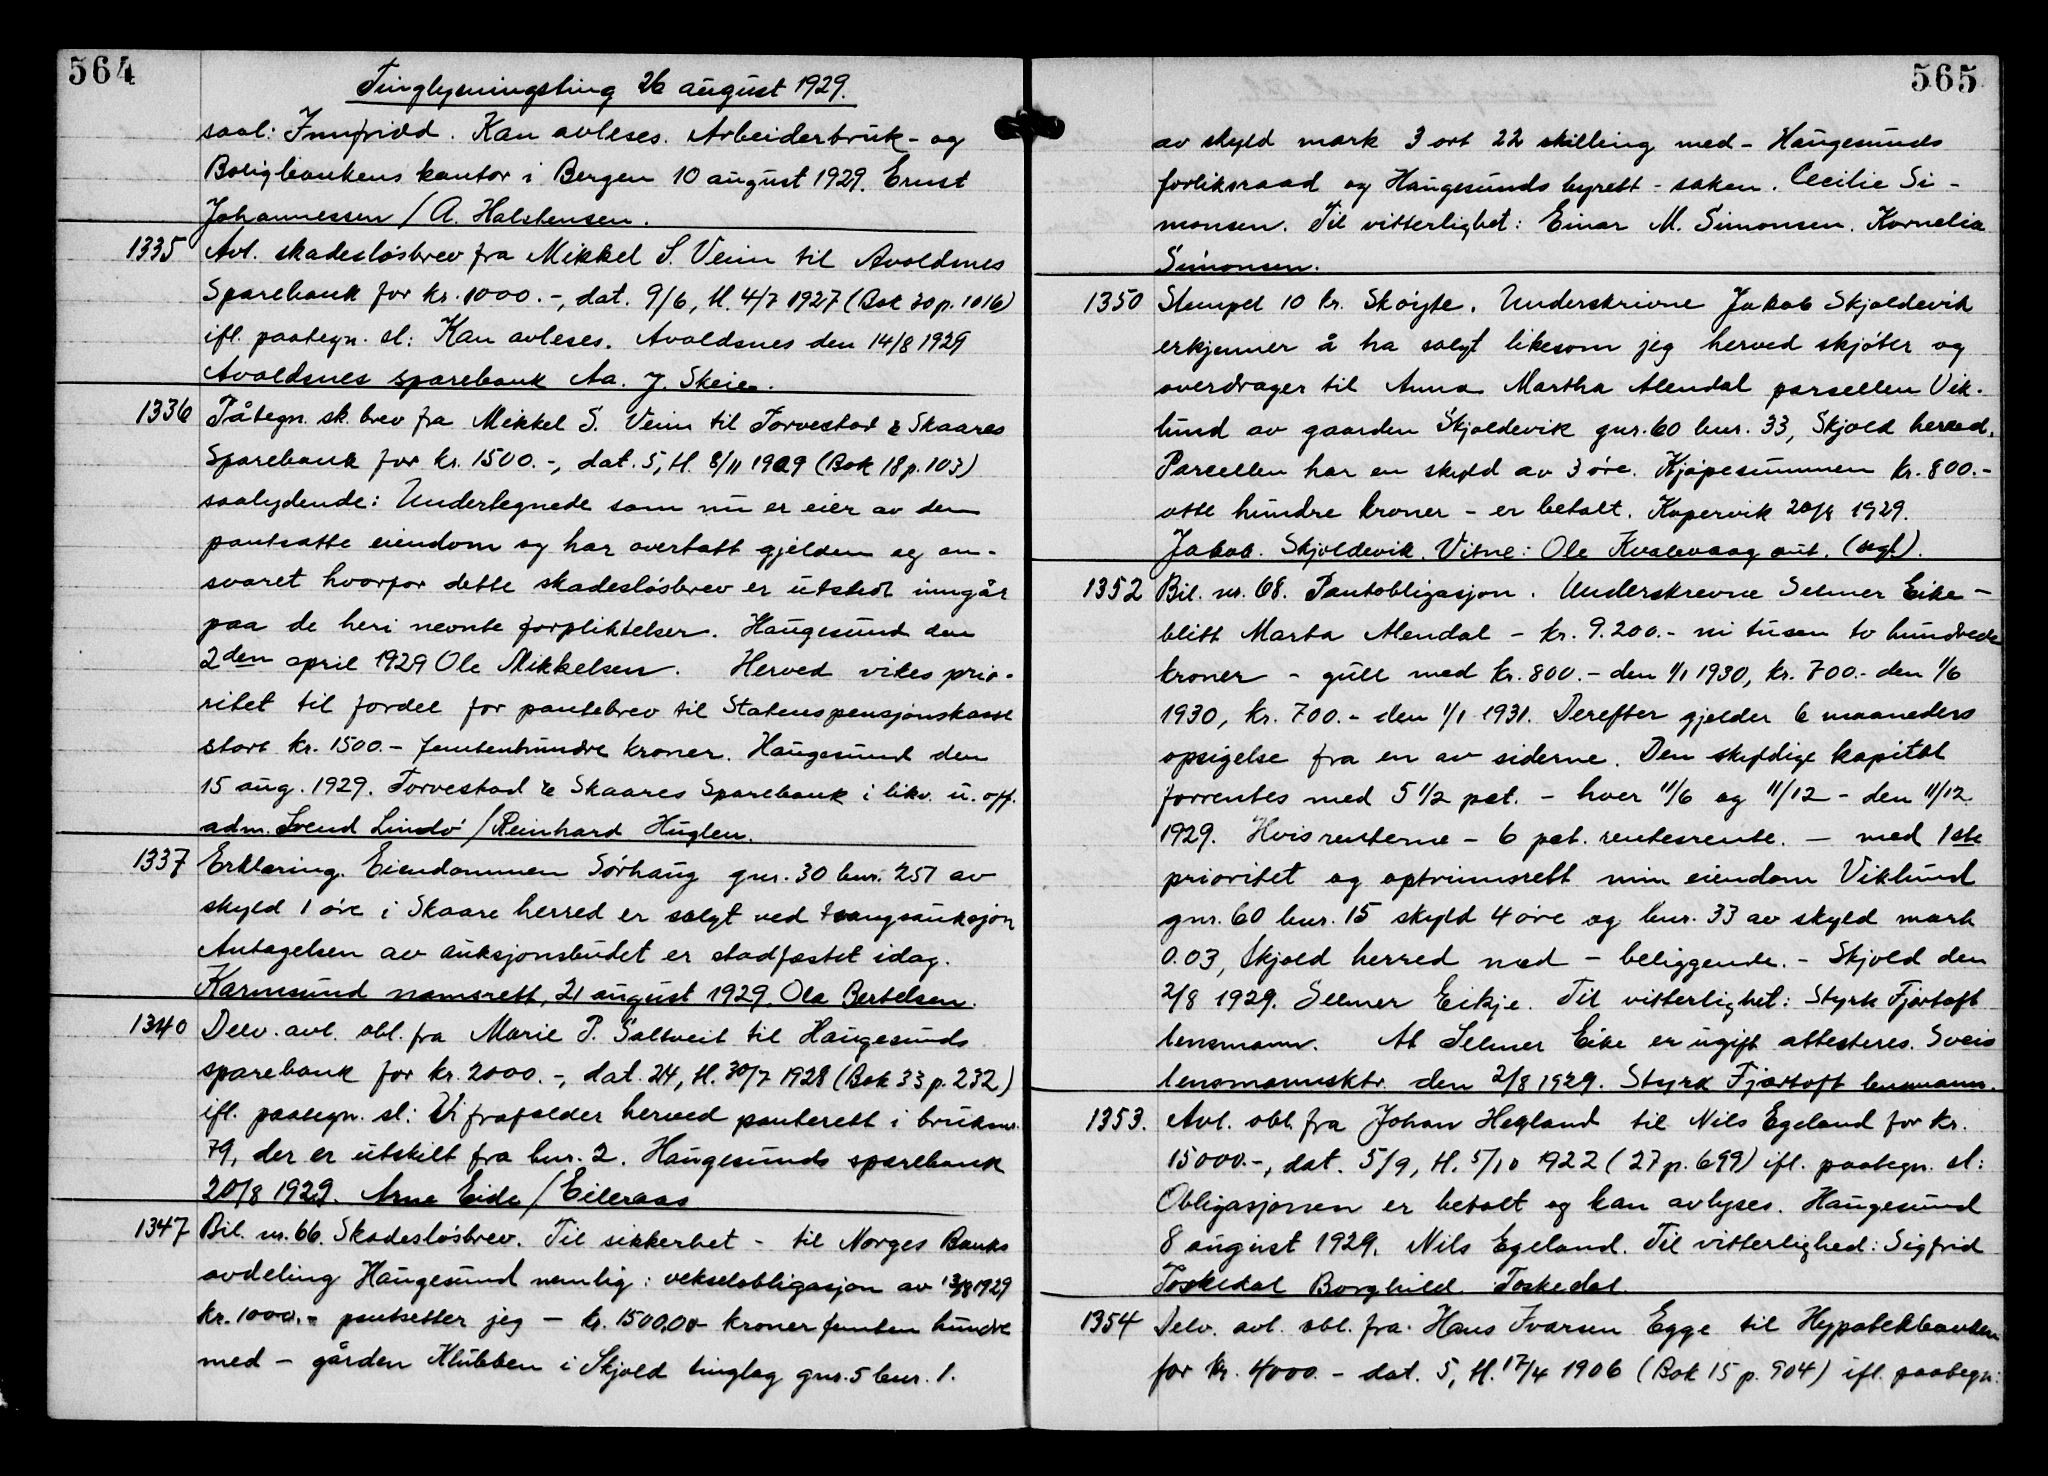 564
Tinglysningsting 26 august 1929.
saal: Innfridd. Kan avleses. Arbeiderbruk- og
Boligbankens kontor i Bergen 10 august 1929. Ernst
Johannessen / A. Halstensen.
1335 Avl. skadesløsbrev fra Mikkel S. Veim til Avaldsnes
Sparebank for kr. 1000.-, dat. 9/6, tl. 4/7 1927 (Bok 30 p. 1016)
ifl. paategn. sl: Kan avleses. Avaldsnes den 14/8 1929
Avaldsnes sparebank Aa. J. Skeie.
1336 Påtegn. sk. brev fra Mikkel S. Veim til Torvestad & Skaares
Sparebank for kr. 1500.-, dat. 5, tl. 8/11 1909 (Bok 18 p. 103)
saalydende: Undertegnede som nu er eier av den
pantsatte eiendom og har overtatt gjelden og an-
svaret hvorfor dette skadesløsbrev er utstedt inngår
paa de heri nevnte forpliktelser. Haugesund den
2den april 1929 Ole Mikkelsen. Herved vikes prio-
ritet til fordel for pantebrev til Statens pensjonskasse
stort kr. 1500.- femtenhundre kroner. Haugesund den
15 aug. 1929. Torvestad & Skaares Sparebank i likv. u. off.
adm. Svend Lindø / Reinhard Huglen.
1337 Erklæring. Eiendommen Sørhaug gnr. 30 bnr. 257 av
skyld 1 øre i Skaare herred er solgt ved tvangsauksjon
Antagelsen av auksjonsbudet er stadfæstet idag.
Karmsund namsrett, 21 august 1929. Ola Bertelsen.
1340 Delv. avl. obl. fra Marie P. Saltveit til Haugesunds
sparebank for kr. 2000.-, dat. 24, tl. 30/7 1928 (Bok 33 p. 232)
ifl. paategn. sl: Vi frafalder herved panterett i bruksnr.
79, der er utskilt fra bnr. 2. Haugesunds sparebank
20/8 1929. Arne Eide / Eileraas
1347 Bil. nr. 66. Skadesløsbrev. Til sikkerhet - til Norges Banks
avdeling Haugesund nemlig: vekselobligasjon av 13/8 1929
kr. 1000.- pantsetter jeg - kr. 1500.00 kroner femten hundre
med - gården Klubben i Skjold tinglag gnr. 5 bnr. 1.
565
av skyld mark 3 ort 22 skilling med - Haugesunds
forliksraad og Haugesunds byrett - saken. Cecilie Si-
monsen. Til vitterlighet: Einar M. Simonsen. Kornelia
Simonsen.
1350 Stempel 10 kr. Skøyte. Underskrivne Jakob Skjoldevik
erkjenner å ha solgt likesom jeg herved skjøter og
overdrager til Anna Martha Alendal parsellen Vik-
lund av gaarden Skjoldevik gnr. 60 bnr. 33, Skjold herred.
Parsellen har en skyld av 3 øre. Kjøpesummen kr. 800.-
otte hundre kroner - er betalt. Kopervik 20/8 1929.
Jakob. Skjoldevik. Vitne: Ole Kvalevaag aut. (segl.).
1352 Bil. nr. 68. Pantobligasjon. Underskrevne Selmer Eike -
blitt Marta Alendal - kr. 9.200.- ni tusen to hundrede
kroner - gull med kr. 800.- den 1/1 1930, kr. 700.- den 1/6
1930, kr. 700.- den 1/1 1931. Derefter gjelder 6 maaneders
opsigelse fra en av siderne. Den skyldige kapital
forrentes med 5 1/2 pct. - hver 11/6 og 11/12 - den 11/12
1929. Hvis renterne - 6 pct. rentesrente. - med 1ste
prioritet og optrinnsrett min eiendom Viklund
gnr. 60 bnr. 15 skyld 4 øre og bnr. 33 av skyld mark
0.03, Skjold herred med - beliggende. - Skjold den
2/8 1929. Selmer Eikje. Til vitterlighet: Styrk Fjørtoft
lensmann. At Selmer Eike er ugift attesteres. Sveio
lensmannsktr. den 2/8 1929. Styrk Fjørtoft lensmann.
1353. Avl. obl. fra Johan Hegland til Nils Egeland for kr.
15000.-, dat. 5/9, tl. 5/10 1922 (27 p. 699) ifl. paategn. sl:
Obligasjonen er betalt og kan avlyses. Haugesund
8 august 1929. Nils Egeland. Til vitterlighed: Sigfrid
Toskedal Borghild Toskedal.
1354 Delv. avl. obl. fra Hans Ivarsen Egge til Hypotekbanken
for kr. 4000.- dat. 5, tl. 17/4 1906 (Bok 15 p. 904) ifl. paategn: